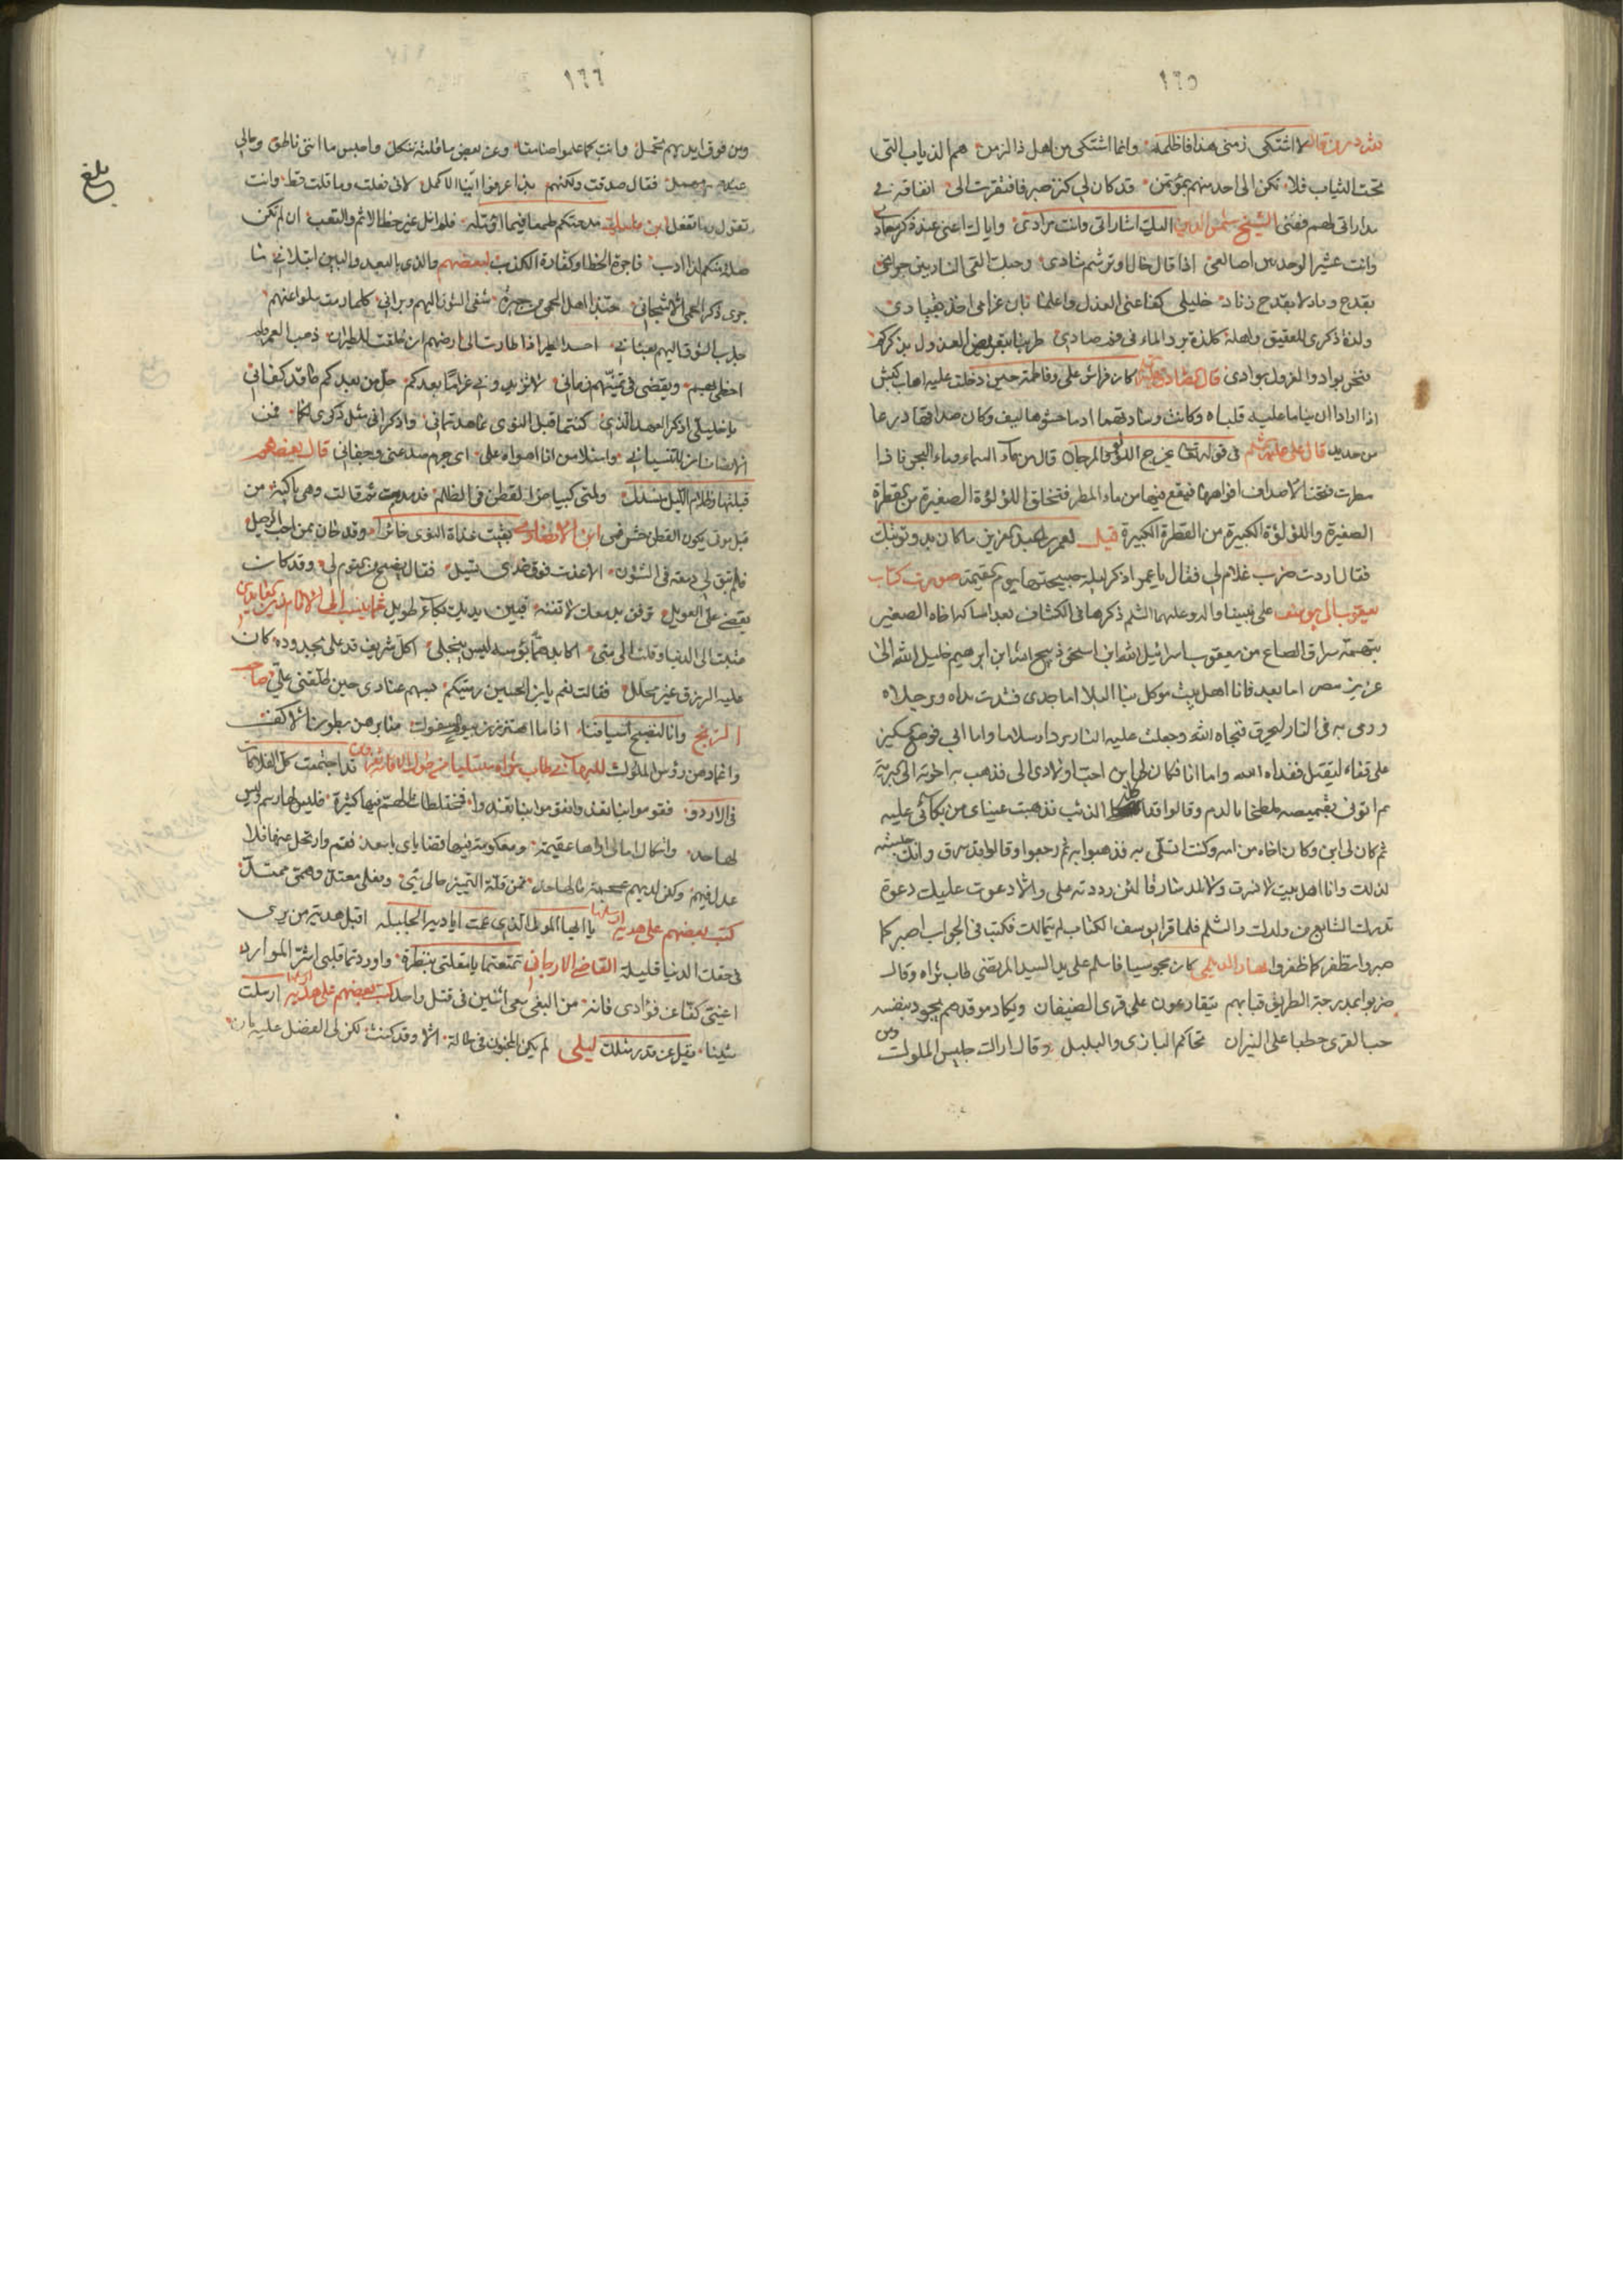 ١٦٥
لا اشتكى زمنى هذا فاظلمه وانما اشتكى من اهل ذا الزمن هم الذياب التى
تحت الثياب فلا تكن الى احد منهم بمؤتمن قد كان لى كنز صبر فافتقرت الى انفاقه فى
مداراتى لهم ففنى الشيخ شمس الدين اليك اشاراتى وانت مرادى واياك اعنى عند ذكر سعاد
وانت مثير الوجد بين اضالعى اذا قال حاد او ترنم شادى وحبك القى النار بين جوانحى
بقدح وداد لا بقدح زناد خليلى كفا عنى العذل واعلما بان غرامى آخذ بقيادى
ولذة ذكرى للعقيق واهله كلذة برد الماء فى فم صادى طربنا بتعريض العذول بذكركم
فنحن بواد والعذول بوادى قال الصادق كان فراش على وفاطمة حين دخلت عليه اهاب كبش
اذا ارادا ان يناما عليه قلباه وكانت وسادتهما ادما حشوها ليف وكان صداقها درعا
من حديد قال على فى قوله تعالى يخرج منهما اللؤلؤ والمرجان قال من ماء السماء وماء البحر فاذا
مطرت فتحت الاصداف افواهها فيقع فيها من ماء المطر فتخلق اللؤلؤة الصغيرة من القطرة
الصغيرة واللؤلؤة الكبيرة من القطرة الكبيرة قيل لعمر بن عبد العزيز ما كان بدو توبتك
فقال اردت ضرب غلام لى فقال يا عمر اذكر ليلة صبيحتها يوم القيمة صورت كتاب
يعقوب الى يوسف على نبينا واله وعليهما السلم ذكرها فى الكشاف بعد امساكه اخاه الصغير
بتهمة سراق الصاع من يعقوب اسرائيل الله ابن اسحق ذبيح الله ابن ابرهيم خليل الله الى
عزيز مصر اما بعد فانا اهل بيت موكل بنا البلا اما جدى فشدت يداه ورجلاه
ورمى به فى النار ليحرق فنجاه الله وجعلت عليه النار بردا وسلاما واما ابى فوضع السكين
على قفاه ليقتل ففداه الله واما انا فكان لى ابن احب اولادى الى فذهب به اخوته الى البرية
ثم اتونى بقميصه ملطخا بالدم وقالوا قد اكله الذئب فذهبت عيناى من بكائى عليه
ثم كان لى ابن وكان اخاه من امه وكنت اتسلى به فذهبوا به ثم رجعوا وقالوا قد سرق وانك حبسته
لذلك وانا اهل بيت لا نسرق ولا نلد سارقا لئن رددته على والا دعوت عليك دعوة
تدرك السابع من ولدك والسلم فلما قرأ يوسف الكتاب لم يتمالك فكتب فى الجواب اصبر كما
صبروا تظفر كما ظفروا مهيار الديلمى كان مجوسيا فاسلم على يد السيد المرتضى طاب ثراه وقال
ضربوا بمدرجة الطريق قبابهم يتقارعون على قرى الضيفان ويكاد موقدهم يجود بنفسه
حب القرى حطبا على النيران تحاكم البازى والبلبل وقال اراك جليس الملوك
ومن
١٦٦
ومن فوق ايديهم تحمل وانت كما علموا صامت وعن بعض ما قلته تنكل واحبس مع اننى ناطق وحالى
فقال صدقت ولكنهم بذا عرفوا ايّنا الاكمل لانى فعلت وما قلت قط وانت
تقول وما تفعل مدحتكم طمعا فيما اؤمله فلم انل غير حظ الاثم والتعب ان لم تكن
صلة منكم لذى ادب فاجرة الخط وكفارة الكذب لبعضهم والذى بالبعد والبين ابتلانى ما
جرى ذكر الحمى الا شجانى حبذا اهل الحمى من جيرة شفنى الشوق اليهم وبرانى كلما رمت سلوا عنهم
جذب الشوق اليهم بعنانى احسد الطير اذا طارت الى ارضهم ان اقلعت للطيران ذهب العمر ولم
احظ بهم وتقضى فى تمنيهم زمانى لا تزيدونى غراما بعدكم حل من بعدكم ما قد كفانى
يا خليلى اذكرا العهد الذى كنتما قبل النوى عاهدتمانى واذكرانى مثل ذكرى لكما فمن
الانصاف ان لا تنسيانى واسئلا من انا اهواه على اى جرم صد عنى وجفانى قال بعضهم
قبلتها وظلام الليل منسدل ولمتى كبياض القطن فى الظلم قدمدمت ثم قالت وهى باكية من
قبل موتى يكون القطن حشو فمى بقيت غداة النوى حائرا وقد حان ممن احب الرحيل
فلم تبق لى دمعة فى الشؤون الا غدت فوق خدى تسيل فقال نصيح من القوم لى وقد كان
يقضى على العويل ترفق بدمعك لا تفنه فبين يديك بكاء طويل
عتبت على الدنيا وقلت الى متى اكابد هما بؤسه ليس ينجلى اكل شريف قد على بجدوده كان
عليه الرزق غير محلل فقالت نعم يابن الحسين رميتكم بسهم عنادى حين طلقنى على صاحب
الزنج وانا لتصبح اسيافنا اذا ما اهتززن بيوم سفوك منابرهن بطون الاكف
واغمادهن رؤس الملوك قد اجتمعت كل الفلاكات
فى الاردو فقوموا بنا نغدو قوموا بنا نغدوا فتخليطات الهم فيها كثيرة فليس لها رسم وليس
لها حد واشكال امالى اراها عقيمة ومعكوسة فيها قضاياى يا سعد فقم وارتحل عنها فلا
عدل فيهم ولكن لديهم عجمة مالها حد فمن قلة التمييز حالى سيئ وفعلى معتل وهمى ممتد
كتب بعضهم على هدية ارسلها يا ايها المولى الذى عمت اياديه الجليلة اقبل هدية من يرى
فى حقك الدنيا قليلة القاضى الارجانى تمتعتما يا مقلتى بنظرة واوردتما قلبى اشر الموارد
اعينى كفا عن فؤادى فانه من البغى سعى اثنين فى قتل واحد كتب بعضهم على هدية ارسلت
شيئا يقل عن قدر مثلك ليلى لم يكن المجنون فى حالة الا وقد كنت كما كانا لكن لى الفضل عليه بان
بلغ